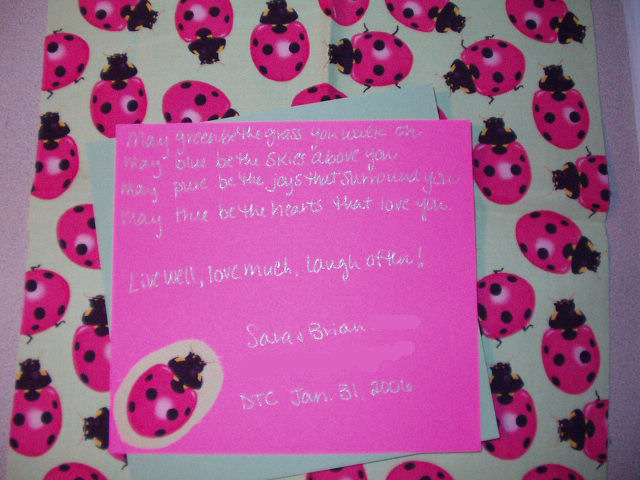 May green be the grass you walk on
May blue be the skies above you
May pure be the joys that surround you
May true be the hearts that love you.
Live well, love much, laugh often!
Sara & Brian
DTC Jan. 31, 2006